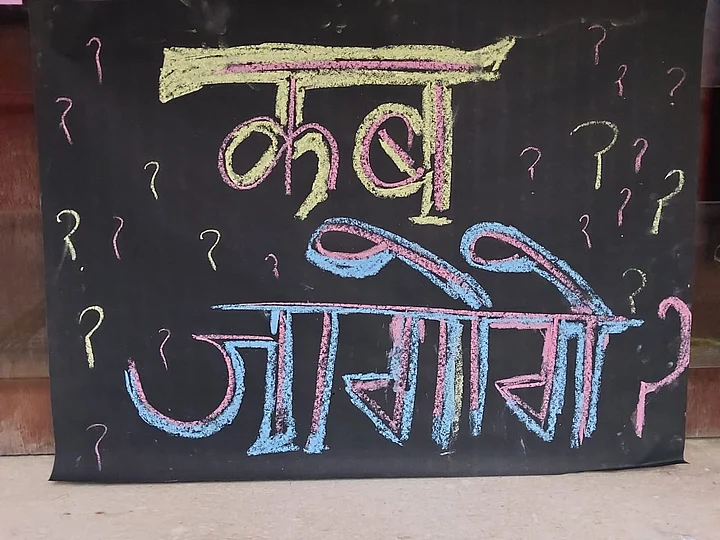 कब
जागोगे ?